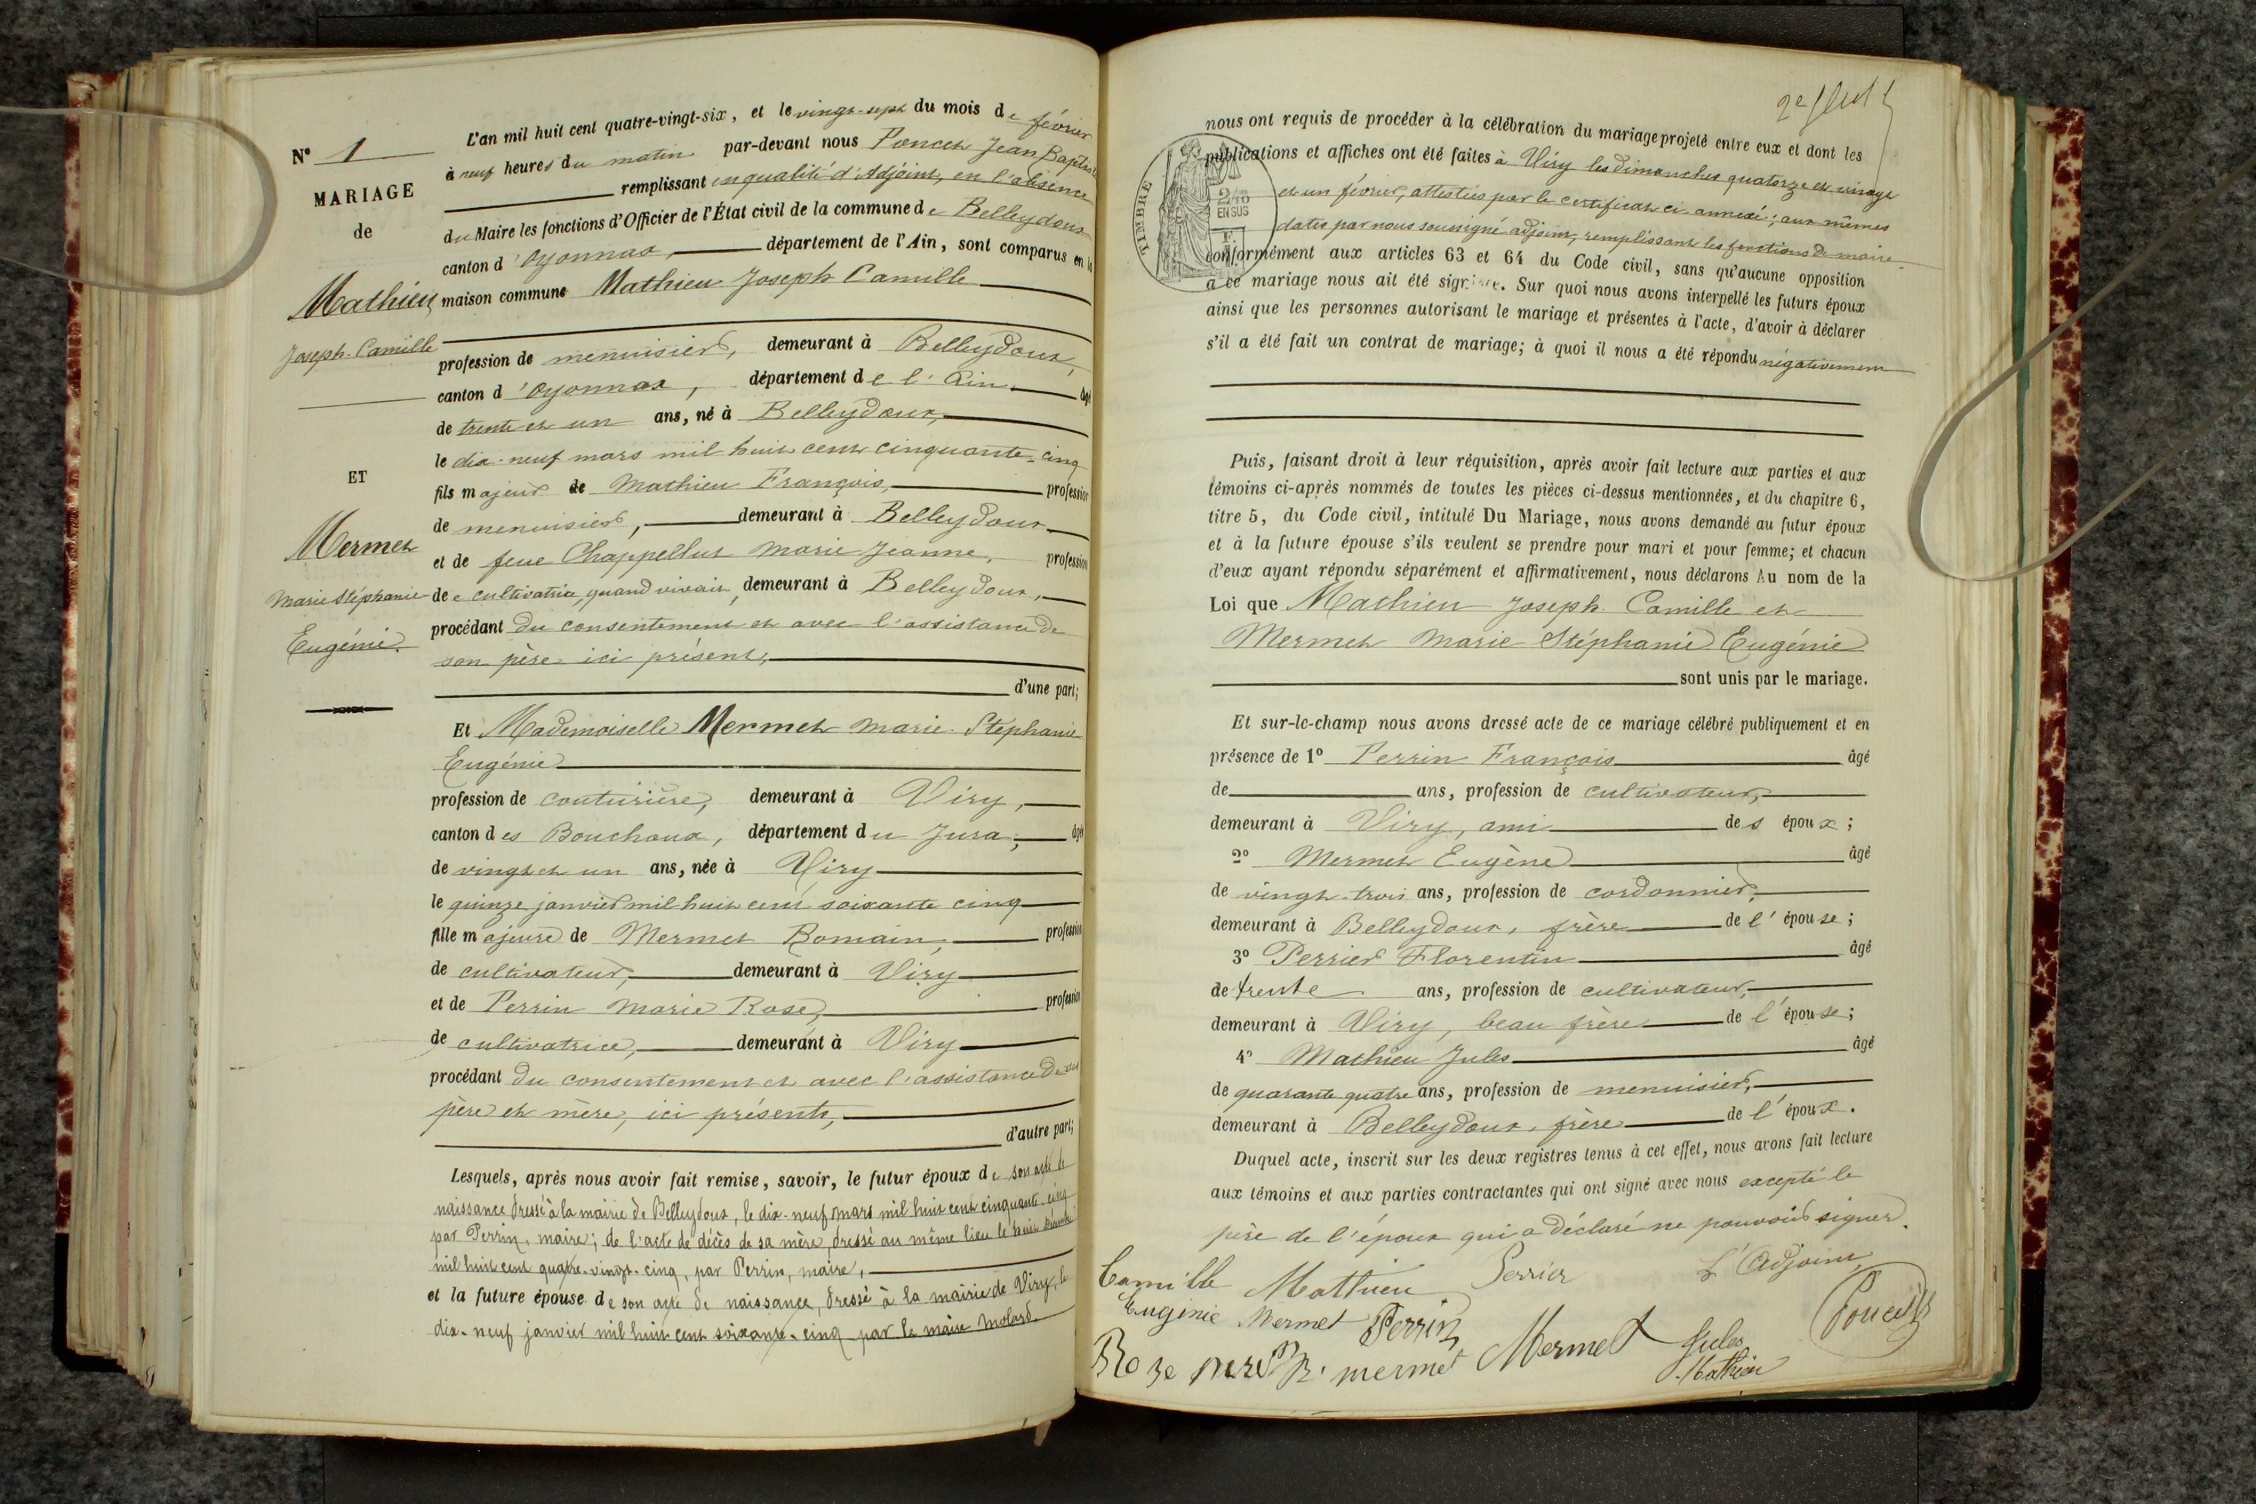 N° 1
MARIAGE
de
Mathieu
Joseph Camille
ET
Mermet
Marie Stéphanie
Eugénie.
L'an mil huit cent quatre-vingt-six, et le vingt-sept du mois de février
à neuf heures du matin par-devant nous Poncet Jean Baptiste
remplissant en qualité d'Adjoint, en l'absence
du Maire les fonctions d'Officier de l'État civil de la commune de Belleydoux
canton d'Oyonnax, département de l'Ain, sont comparus en la
maison commune Mathieu Joseph Camille
profession de menuisier, demeurant à Belleydoux,
canton d'Oyonnax, département de l'Ain, âgé
de trente et un ans, né à Belleydoux,
le dix-neuf mars mil huit cent cinquante-cinq
fils majeur de Mathieu François, profession
de menuisier, demeurant à Belleydoux
et de feue Chappellut Marie Jeanne, profession
de cultivatrice, quand vivait, demeurant à Belleydoux,
procédant du consentement et avec l'assistance de
son père ici présent,
d'une part;
Et Mademoiselle Mermet Marie Stéphanie
Eugénie
profession de couturière, demeurant à Viry,
canton des Bouchoux, département du Jura, âgée
de vingt et un ans, née à Viry
le quinze janvier mil huit cent soixante cinq
fille majeure de Mermet Romain, profession
de cultivateur, demeurant à Viry
et de Perrin Marie Rose, profession
de cultivatrice, demeurant à Viry
procédant du consentement et avec l'assistance de ses
père et mère, ici présents,
d'autre part;
Lesquels, après nous avoir fait remise, savoir, le futur époux de son acte de
naissance dressé à la mairie de Belleydoux, le dix-neuf mars mil huit cent cinquante-cinq
par Perrin, maire; de l'acte de décès de sa mère, dressé au même lieu le huit
mil huit cent quatre-vingt-cinq, par Perrin, maire,
et la future épouse de son acte de naissance, dressé à la mairie de Viry, le
dix-neuf janvier mil huit cent soixante-cinq par le maire Molard.
2e
nous ont requis de procéder à la célébration du mariage projeté entre eux et dont les
publications et affiches ont été faites à Viry les dimanches quatorze et vingt
et un février, attestées par le certificat ci-annexé; aux mêmes
dates par nous soussigné adjoint, remplissant les fonctions de maire.
TIMBRE
2/10
EN SUS
conformément aux articles 63 et 64 du Code civil, sans qu'aucune opposition
à ce mariage nous ait été signifiée. Sur quoi nous avons interpellé les futurs époux
ainsi que les personnes autorisant le mariage et présentes à l'acte, d'avoir à déclarer
s'il a été fait un contrat de mariage; à quoi il nous a été répondu négativement
Puis, faisant droit à leur réquisition, après avoir fait lecture aux parties et aux
témoins ci-après nommés de toutes les pièces ci-dessus mentionnées, et du chapitre 6,
titre 5, du Code civil, intitulé Du Mariage, nous avons demandé au futur époux
et à la future épouse s'ils veulent se prendre pour mari et pour femme; et chacun
d'eux ayant répondu séparément et affirmativement, nous déclarons Au nom de la
Loi que Mathieu Joseph Camille et
Mermet Marie Stéphanie Eugénie
sont unis par le mariage.
Et sur-le-champ nous avons dressé acte de ce mariage célébré publiquement et en
présence de 1° Perrin François âgé
de ans, profession de cultivateur,
demeurant à Viry, ami des époux;
2° Mermet Eugène âgé
de vingt-trois ans, profession de cordonnier,
demeurant à Belleydoux, frère de l'épouse;
3° Perrier Florentin âgé
de trente ans, profession de cultivateur,
demeurant à Viry, beau frère de l'épouse;
4° Mathieu Jules âgé
de quarante quatre ans, profession de menuisier,
demeurant à Belleydoux, frère de l'époux.
Duquel acte, inscrit sur les deux registres tenus à cet effet, nous avons fait lecture
aux témoins et aux parties contractantes qui ont signé avec nous excepté le
père de l'époux qui a déclaré ne pouvoir signer.
Camille Mathieu Perrier L'Adjoint
Eugénie Mermet Perrin Poncet
Roze R. mermet Mermet Jules
Mathieu